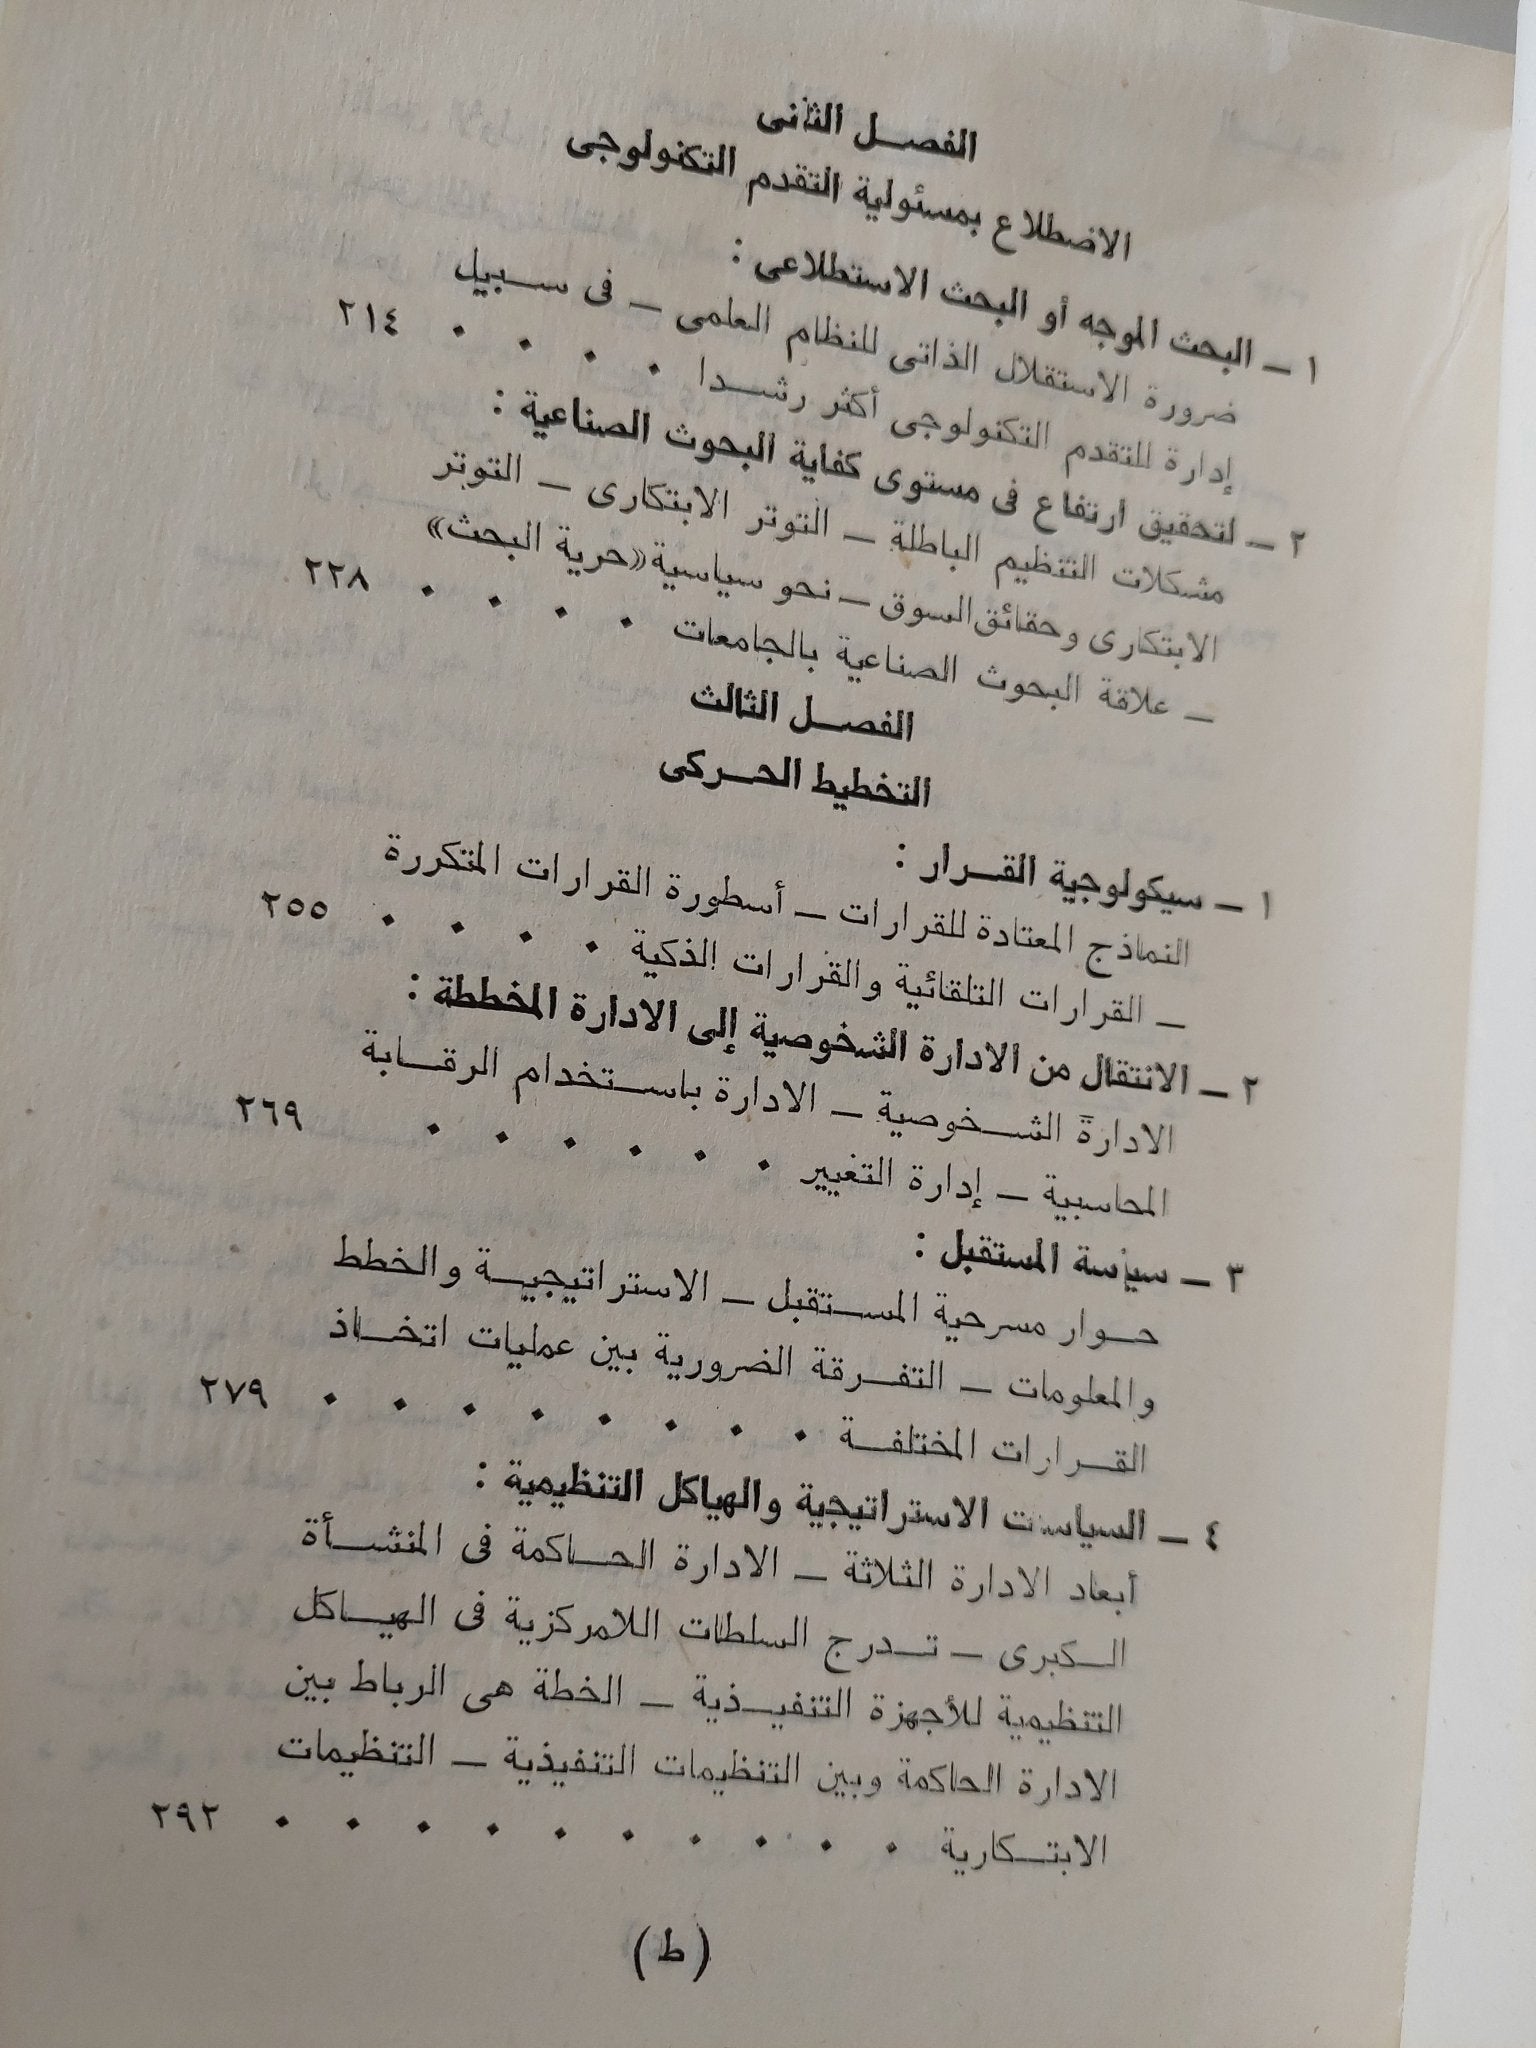 الفصل الثانى
الاضطلاع بمسئولية التقدم التكنولوجى
١ – البحث الموجه أو البحث الاستطلاعى :
ضرورة الاستقلال الذاتى للنظام العلمى – فى سبيل
إدارة للتقدم التكنولوجى أكثر رشدا . . . . ٢١٤
٢ – لتحقيق ارتفاع فى مستوى كفاية البحوث الصناعية :
مشكلات التنظيم الباطلة – التوتر الابتكارى – التوتر
الابتكارى وحقائق السوق – نحو سياسية «حرية البحث»
– علاقة البحوث الصناعية بالجامعات . . . . ٢٢٨
الفصل الثالث
التخطيط الحركى
١ – سيكولوجية القرار :
النماذج المعتادة للقرارات – أسطورة القرارات المتكررة
– القرارات التلقائية والقرارات الذكية . . . . ٢٥٥
٢ – الانتقال من الادارة الشخوصية إلى الادارة المخططة :
الادارة الشخوصية – الادارة باستخدام الرقابة
المحاسبية – إدارة التغيير . . . . . . ٢٦٩
٣ – سياسة المستقبل :
حوار مسرحية المستقبل – الاستراتيجية والخطط
والمعلومات – التفرقة الضرورية بين عمليات اتخاذ
القرارات المختلفة . . . . . . . . ٢٧٩
٤ – السياسات الاستراتيجية والهياكل التنظيمية :
أبعاد الادارة الثلاثة – الادارة الحاكمة فى المنشأة
الكبرى – تدرج السلطات اللامركزية فى الهياكل
التنظيمية للأجهزة التنفيذية – الخطة هى الرباط بين
الادارة الحاكمة وبين التنظيمات التنفيذية – التنظيمات
الابتكارية . . . . . . . . . . ٢٩٢
(ط)